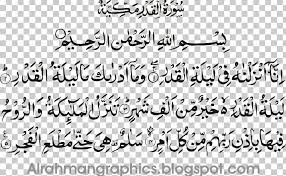 سُورَةُ الْقَدْرِ مَكِّيَّةٌ
بِسْمِ اللهِ الرَّحْمٰنِ الرَّحِيْمِ
اِنَّاۤ اَنْزَلْنٰهُ فِيْ لَيْلَةِ الْقَدْرِ ۝ وَمَاۤ اَدْرٰىكَ مَا لَيْلَةُ الْقَدْرِ ۝
لَيْلَةُ الْقَدْرِ خَيْرٌ مِّنْ اَلْفِ شَهْرٍ ۝ تَنَزَّلُ الْمَلٰٓئِكَةُ وَالرُّوْحُ
فِيْهَا بِاِذْنِ رَبِّهِمْ مِّنْ كُلِّ اَمْرٍ ۝ سَلٰمٌ هِيَ حَتّٰى مَطْلَعِ الْفَجْرِ ۝
Alrahmangraphics.blogspot.com